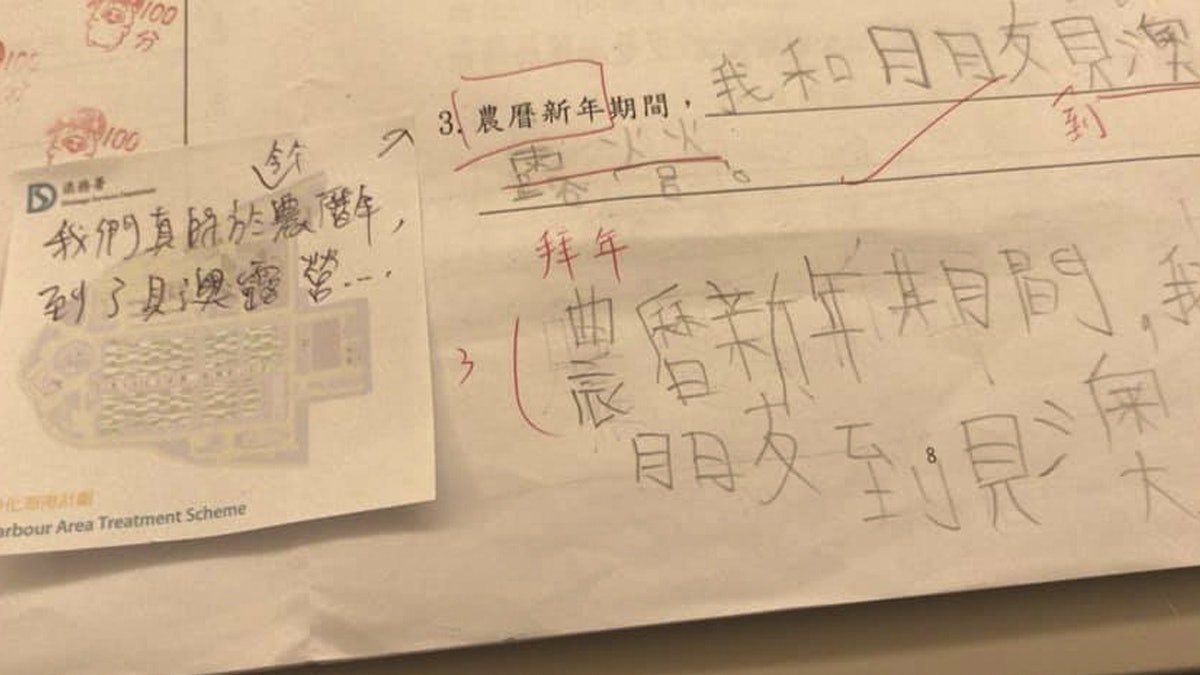 100
分
100
分
100
3. 農曆新年期間，我和朋友貝澳
到
露營。
拜年
3
農曆新年期間，我
朋友到貝澳
8
渠務署
今个
我們真的於農曆年，
到了貝澳露營…
淨化海港計劃
arbour Area Treatment Scheme